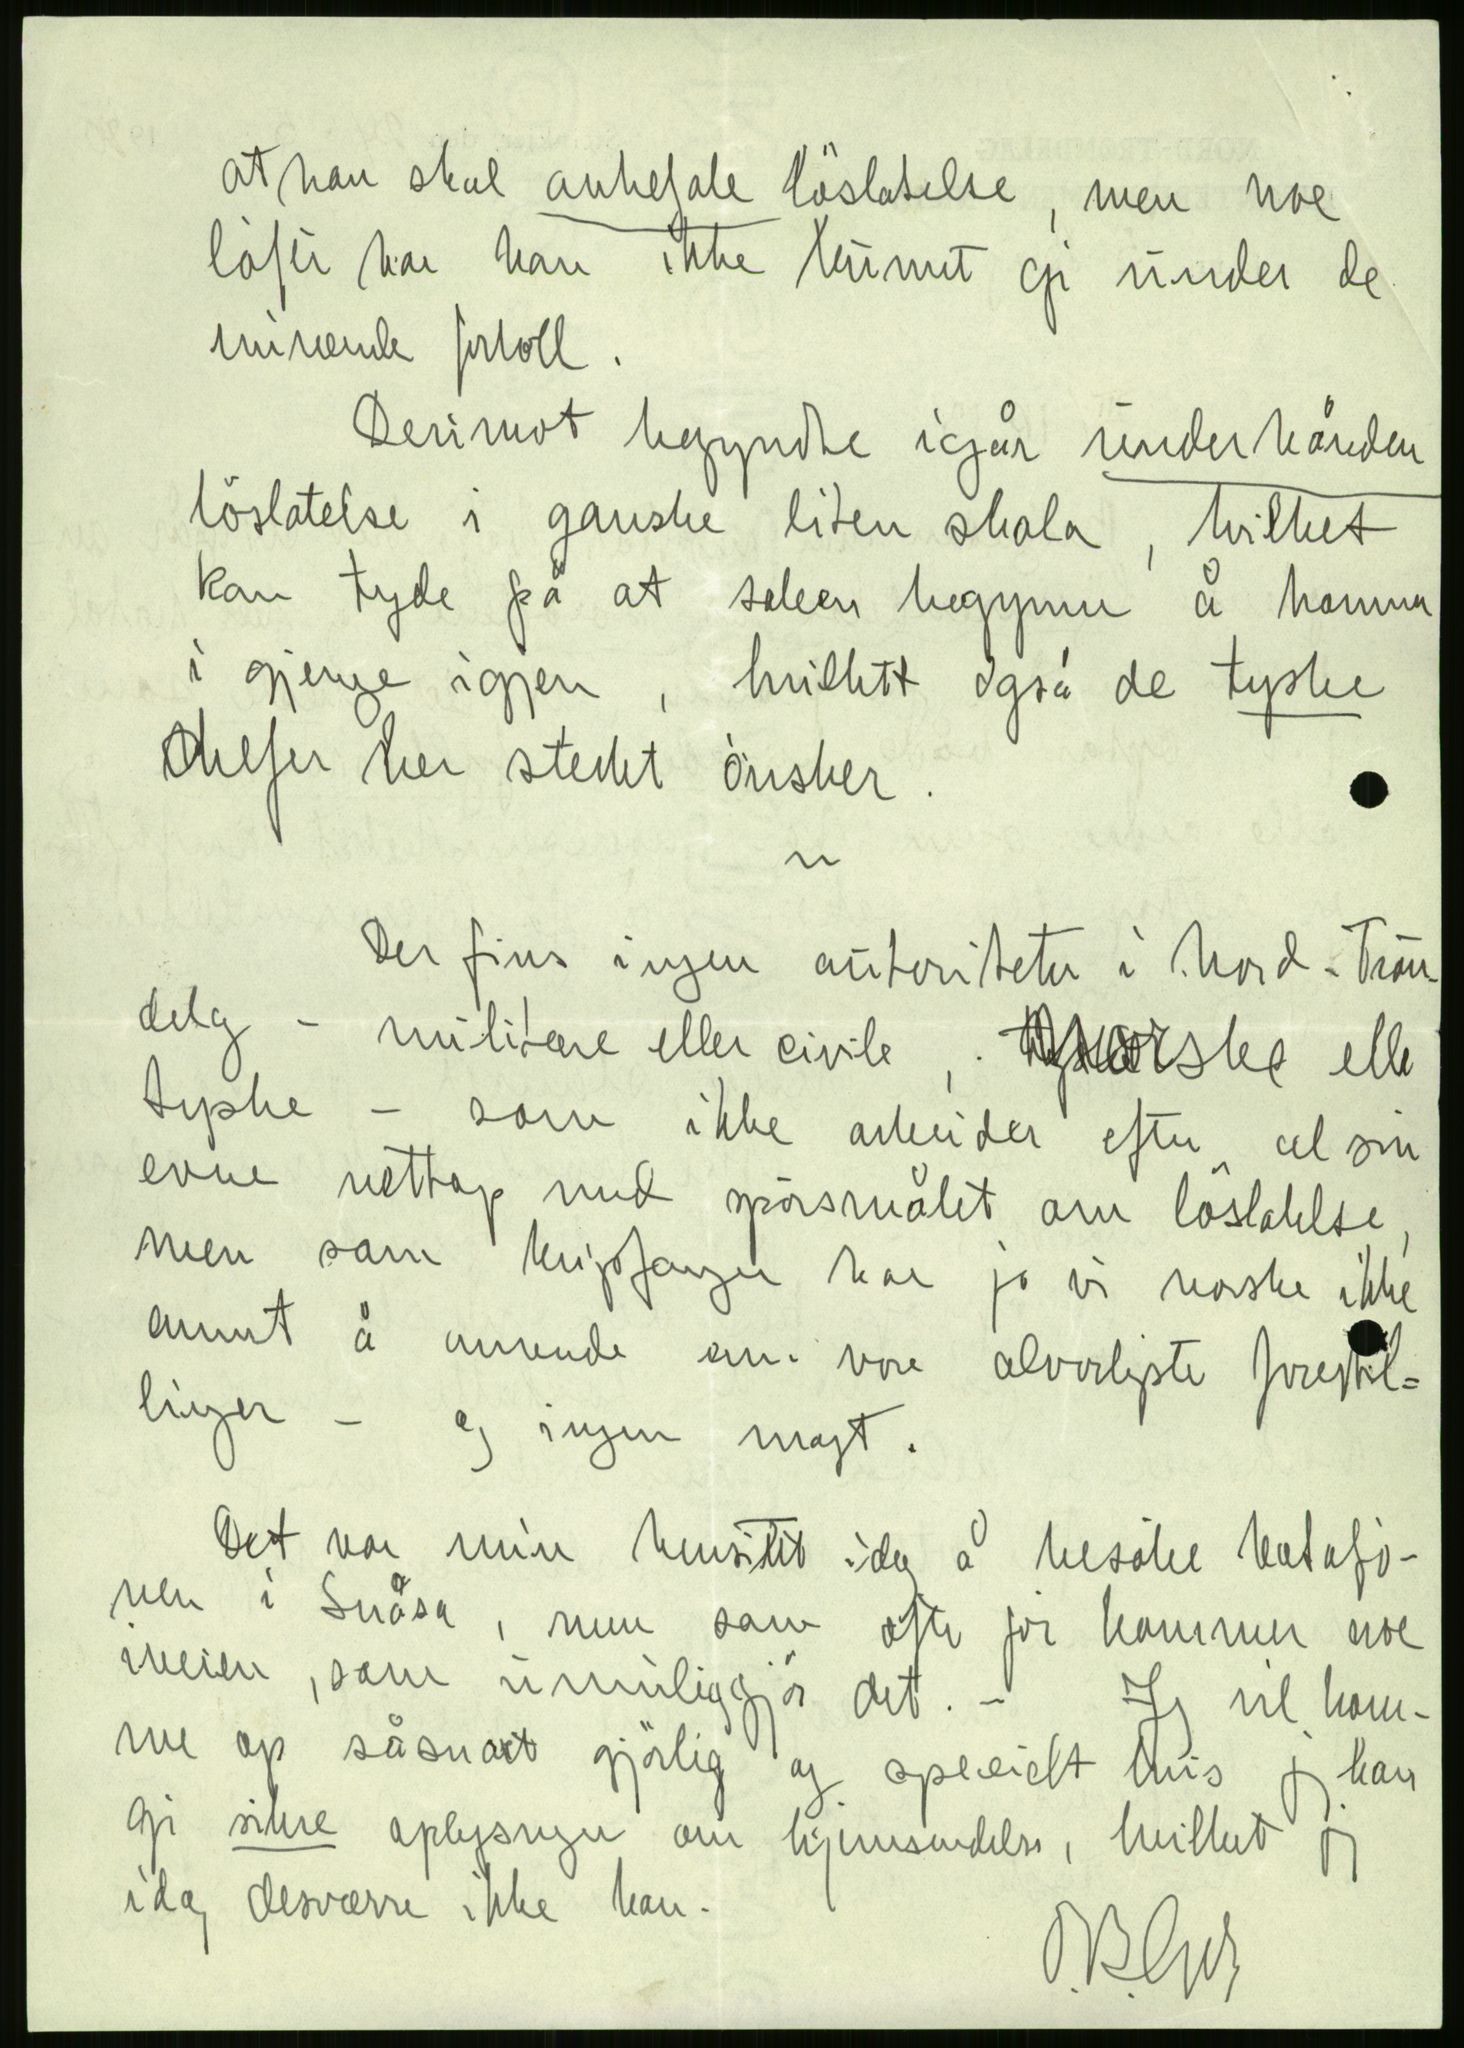 at han skal anbefale löslatelse, men noe
löfte har han ikke kunnet gi under de
nuværende forholl.
Derimot begyndte igår underhånden
löslatelse i ganske liten skala, hvilket
kan tyde på at saken begynner å komme
i gjenge igjen, hvilket også de tyske
chefer her stedet önsker.
Der fins ingen autoriteter i Nord-Trön-
delag - militære eller civile, norske eller
tyske - som ikke arbeider efter al sin
evne nettop med spörsmålet om löslatelse,
men som krigsfanger har jo vi norske ikke
annet å anvende enn vore alvorligste forestil=
linger - og ingen magt.
Det var min hensikt idag å besöke bataljo-
nen i Snåsa, men som ofte för kommer noe
iveien, som umuliggjör det. - Jeg vil kom-
me op såsnart gjörlig og specielt hvis jeg kan
gi sikre oplysninger om hjemsendelse, hvilket jeg
idag desværre ikke kan.